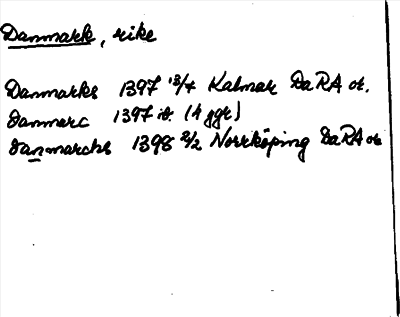 Danmark, rike
Danmarks 1397 13/7 Kalmar DaRA or.
Danmarc 1397 ib. (4 ggr)
Danmarchs 1398 2/2 Norrköping DaRA or